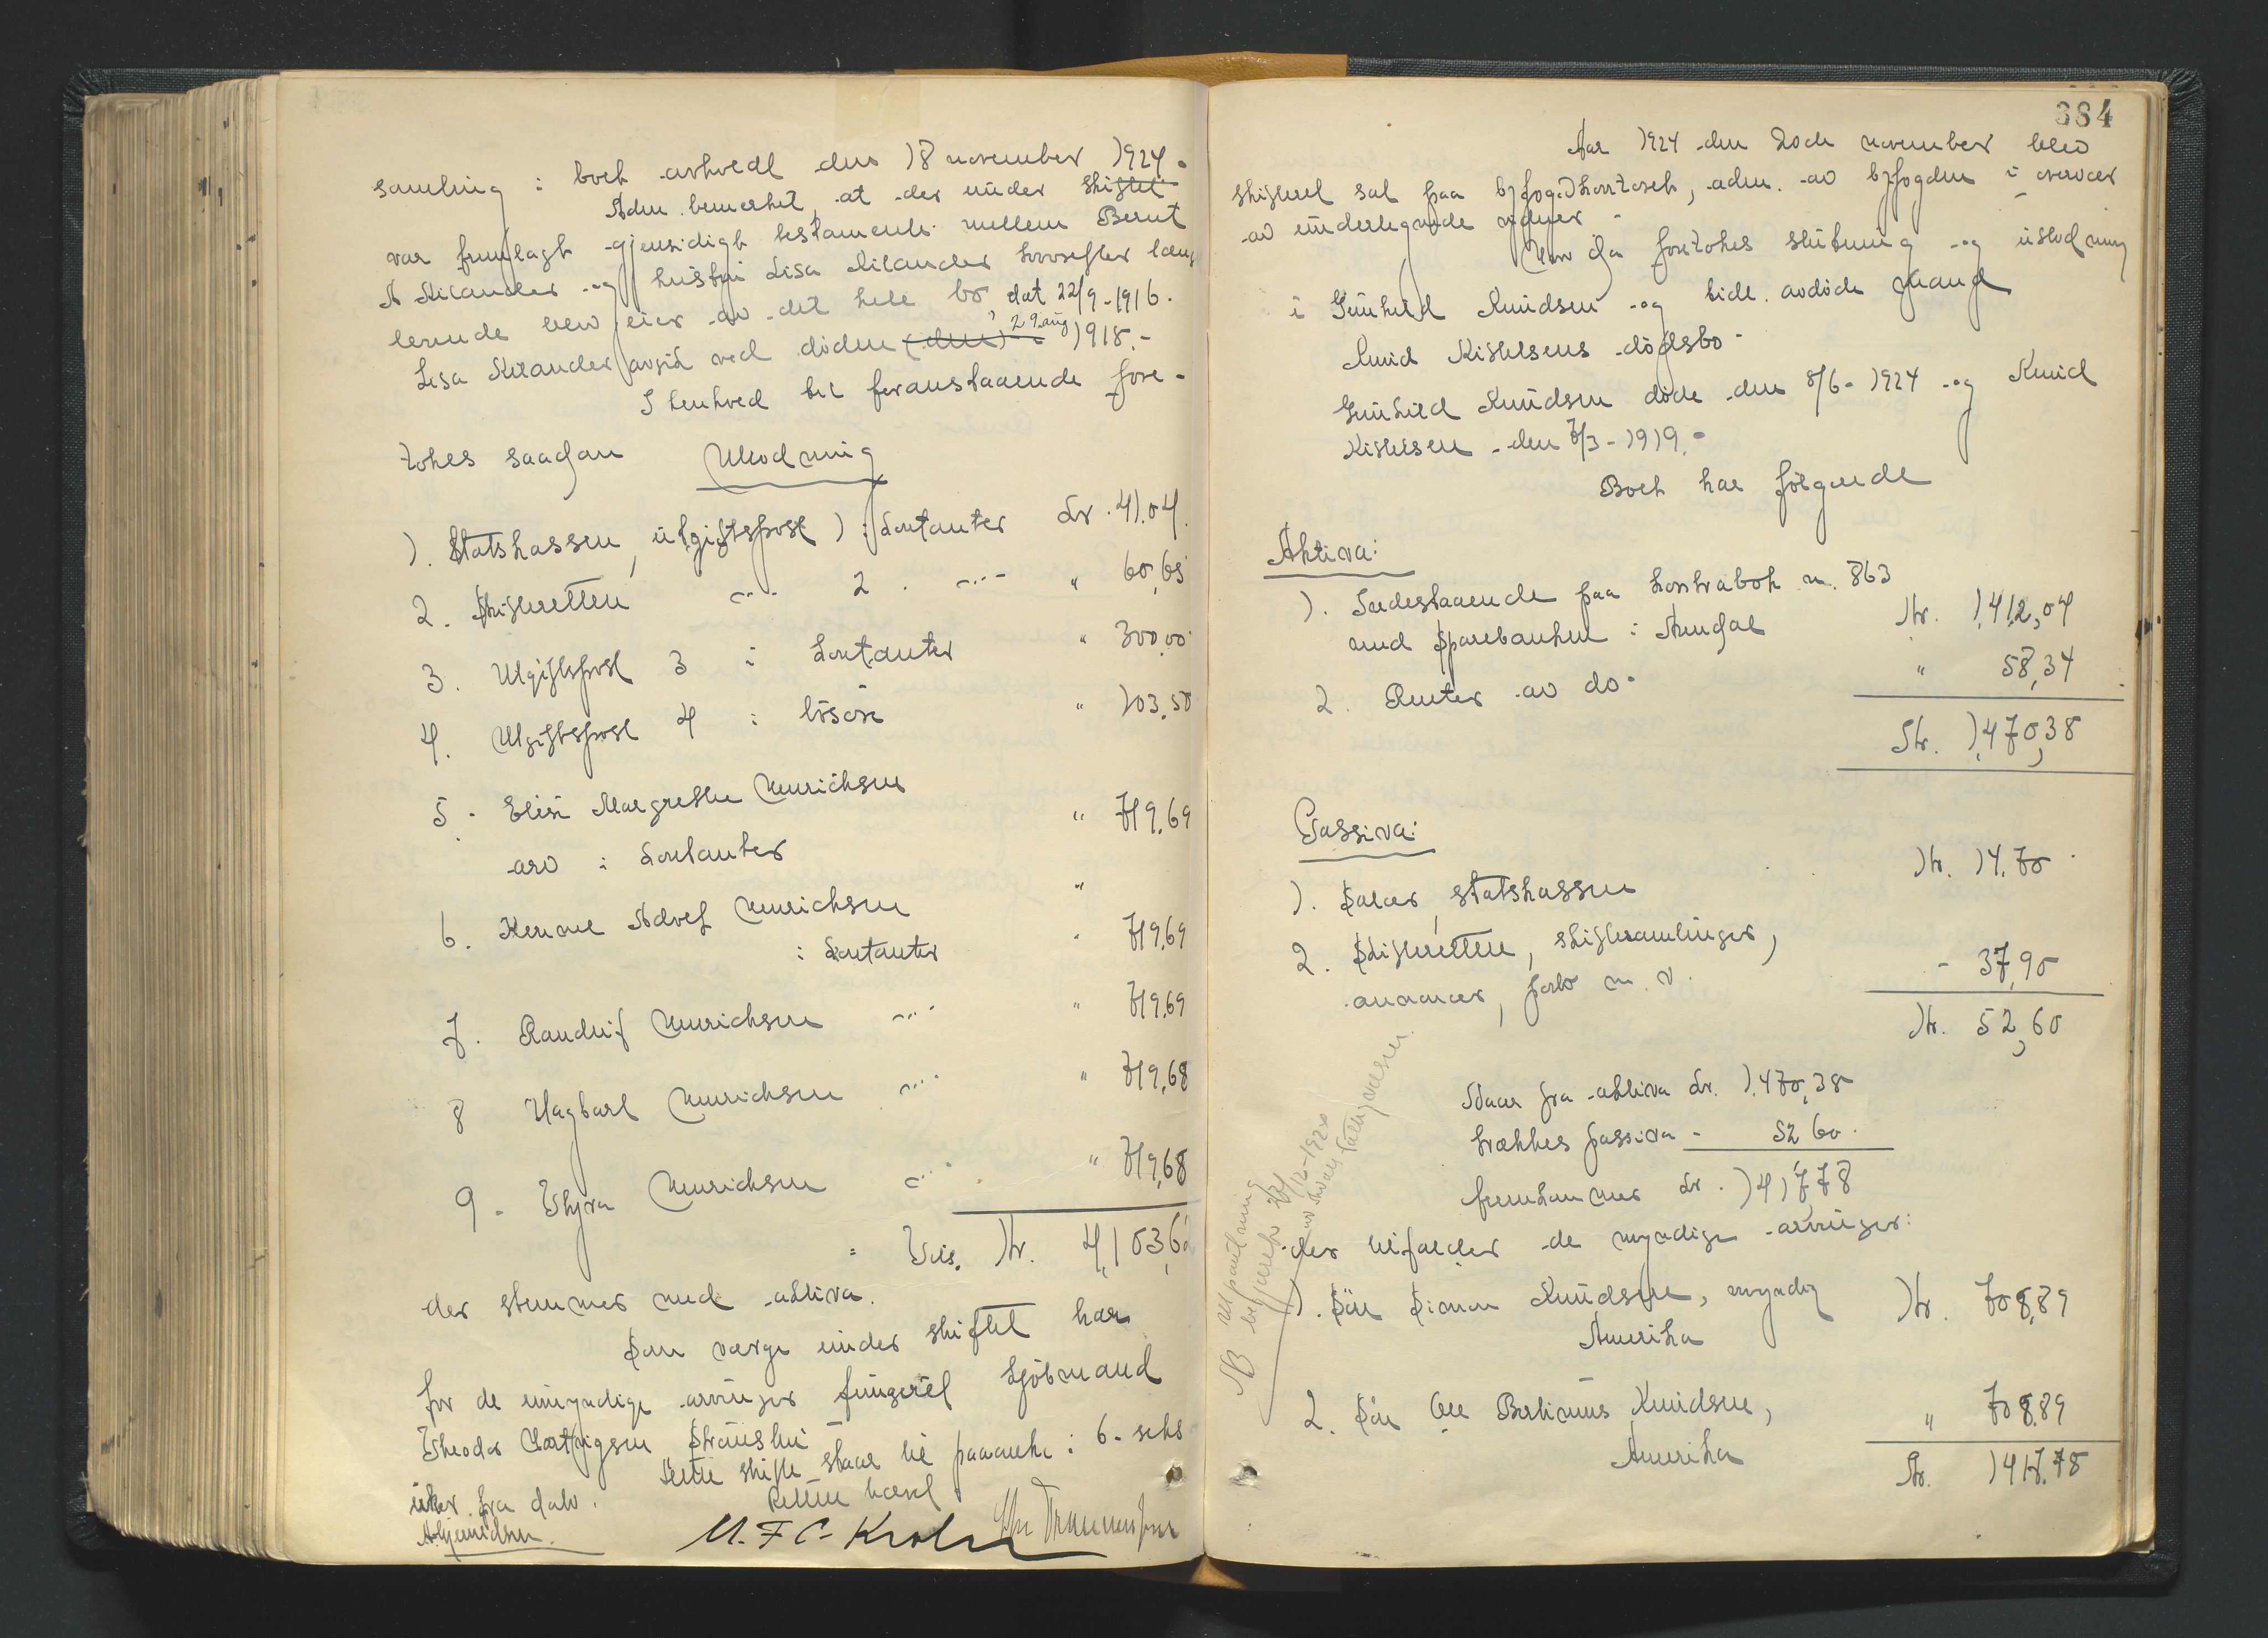 samling i boet avholdt den 18 november 1924.
Adm. bemerket, at der under skiftet
var fremlagt gjensidigt testamente mellem Bernt
A Kilander og hustru Lisa Kilander hvorefter læng
levende blev eier av det hele bo, dat 22/9-1916.
Lisa Kilander avgik ved döden (den) 29 aug 1918.-
I henhold til foranstaaende fore-
tokes saadan Utlodning
1. Statskassen, utgiftspost 1 i kontanter kr. 41.04.
2. Skifteretten -"- 2. -"- " 60,65
3. Utgiftspost 3 i kontanter " 300,00
4. Utgiftspost 4 i lösöre " 103.50
5. Elise Margrethe Henrichsen
arv i kontanter " 719.69
6. Adolf Henrichsen "
i kontanter " 719,69
7. Randulf Henrichsen -"- " 719,69
8 Hagbart Henrichsen -"- " 719,68
9. Thyra Henrichsen -"- " 719,68
Tils. Kr. 4,103,62
der stemmer med aktiva.
Som verge under skiftet har
for de umyndige arvinger fungeret kjöbmand
Theodor Hartvigsen, Strömsbu
Dette skifte staar til paaanke i 6-seks
uker fra dato. Retten hævet
M. F C. Krohn
384
Aar 1924 den 20de november blev
skifteret sat paa byfogdkontoret, adm. av byfogden i overvær
av underlegnede vidner.
Hvor da foretokes slutning og utlodning
i Gunhild Knudsen og tidl. avdöde mand
Knud Kittelsens dödsbo.
Gunhild Knudsen döde den 8/6-1924 og Knud
Kittelsen den 7/3-1919.-
Boet har fölgende
Aktiva:
1. Indestaaende paa kontrabok n. 863
med Sparebanken i Arendal Kr. 1,412,04
2. Renter av do. " 58,34
Kr. 1,470,38
Passiva:
1. Salær, statskassen Kr. 14.70.
2. Skifteretten, skiftesamlinger,
annoncer, porto m. v. - 37,90
Kr. 52,60
Naar fra aktiva kr. 1.470,38
trækkes passiva - 52 60.
fremkommer kr. 1417,78
der tilfalder de myndige arvinger:
1. Sön Simon Knudsen, myndig Kr. 708,89
Amerika
2. Sön Ole Bertinius Knudsen, " 708.89
Amerika Kr. 1417.78